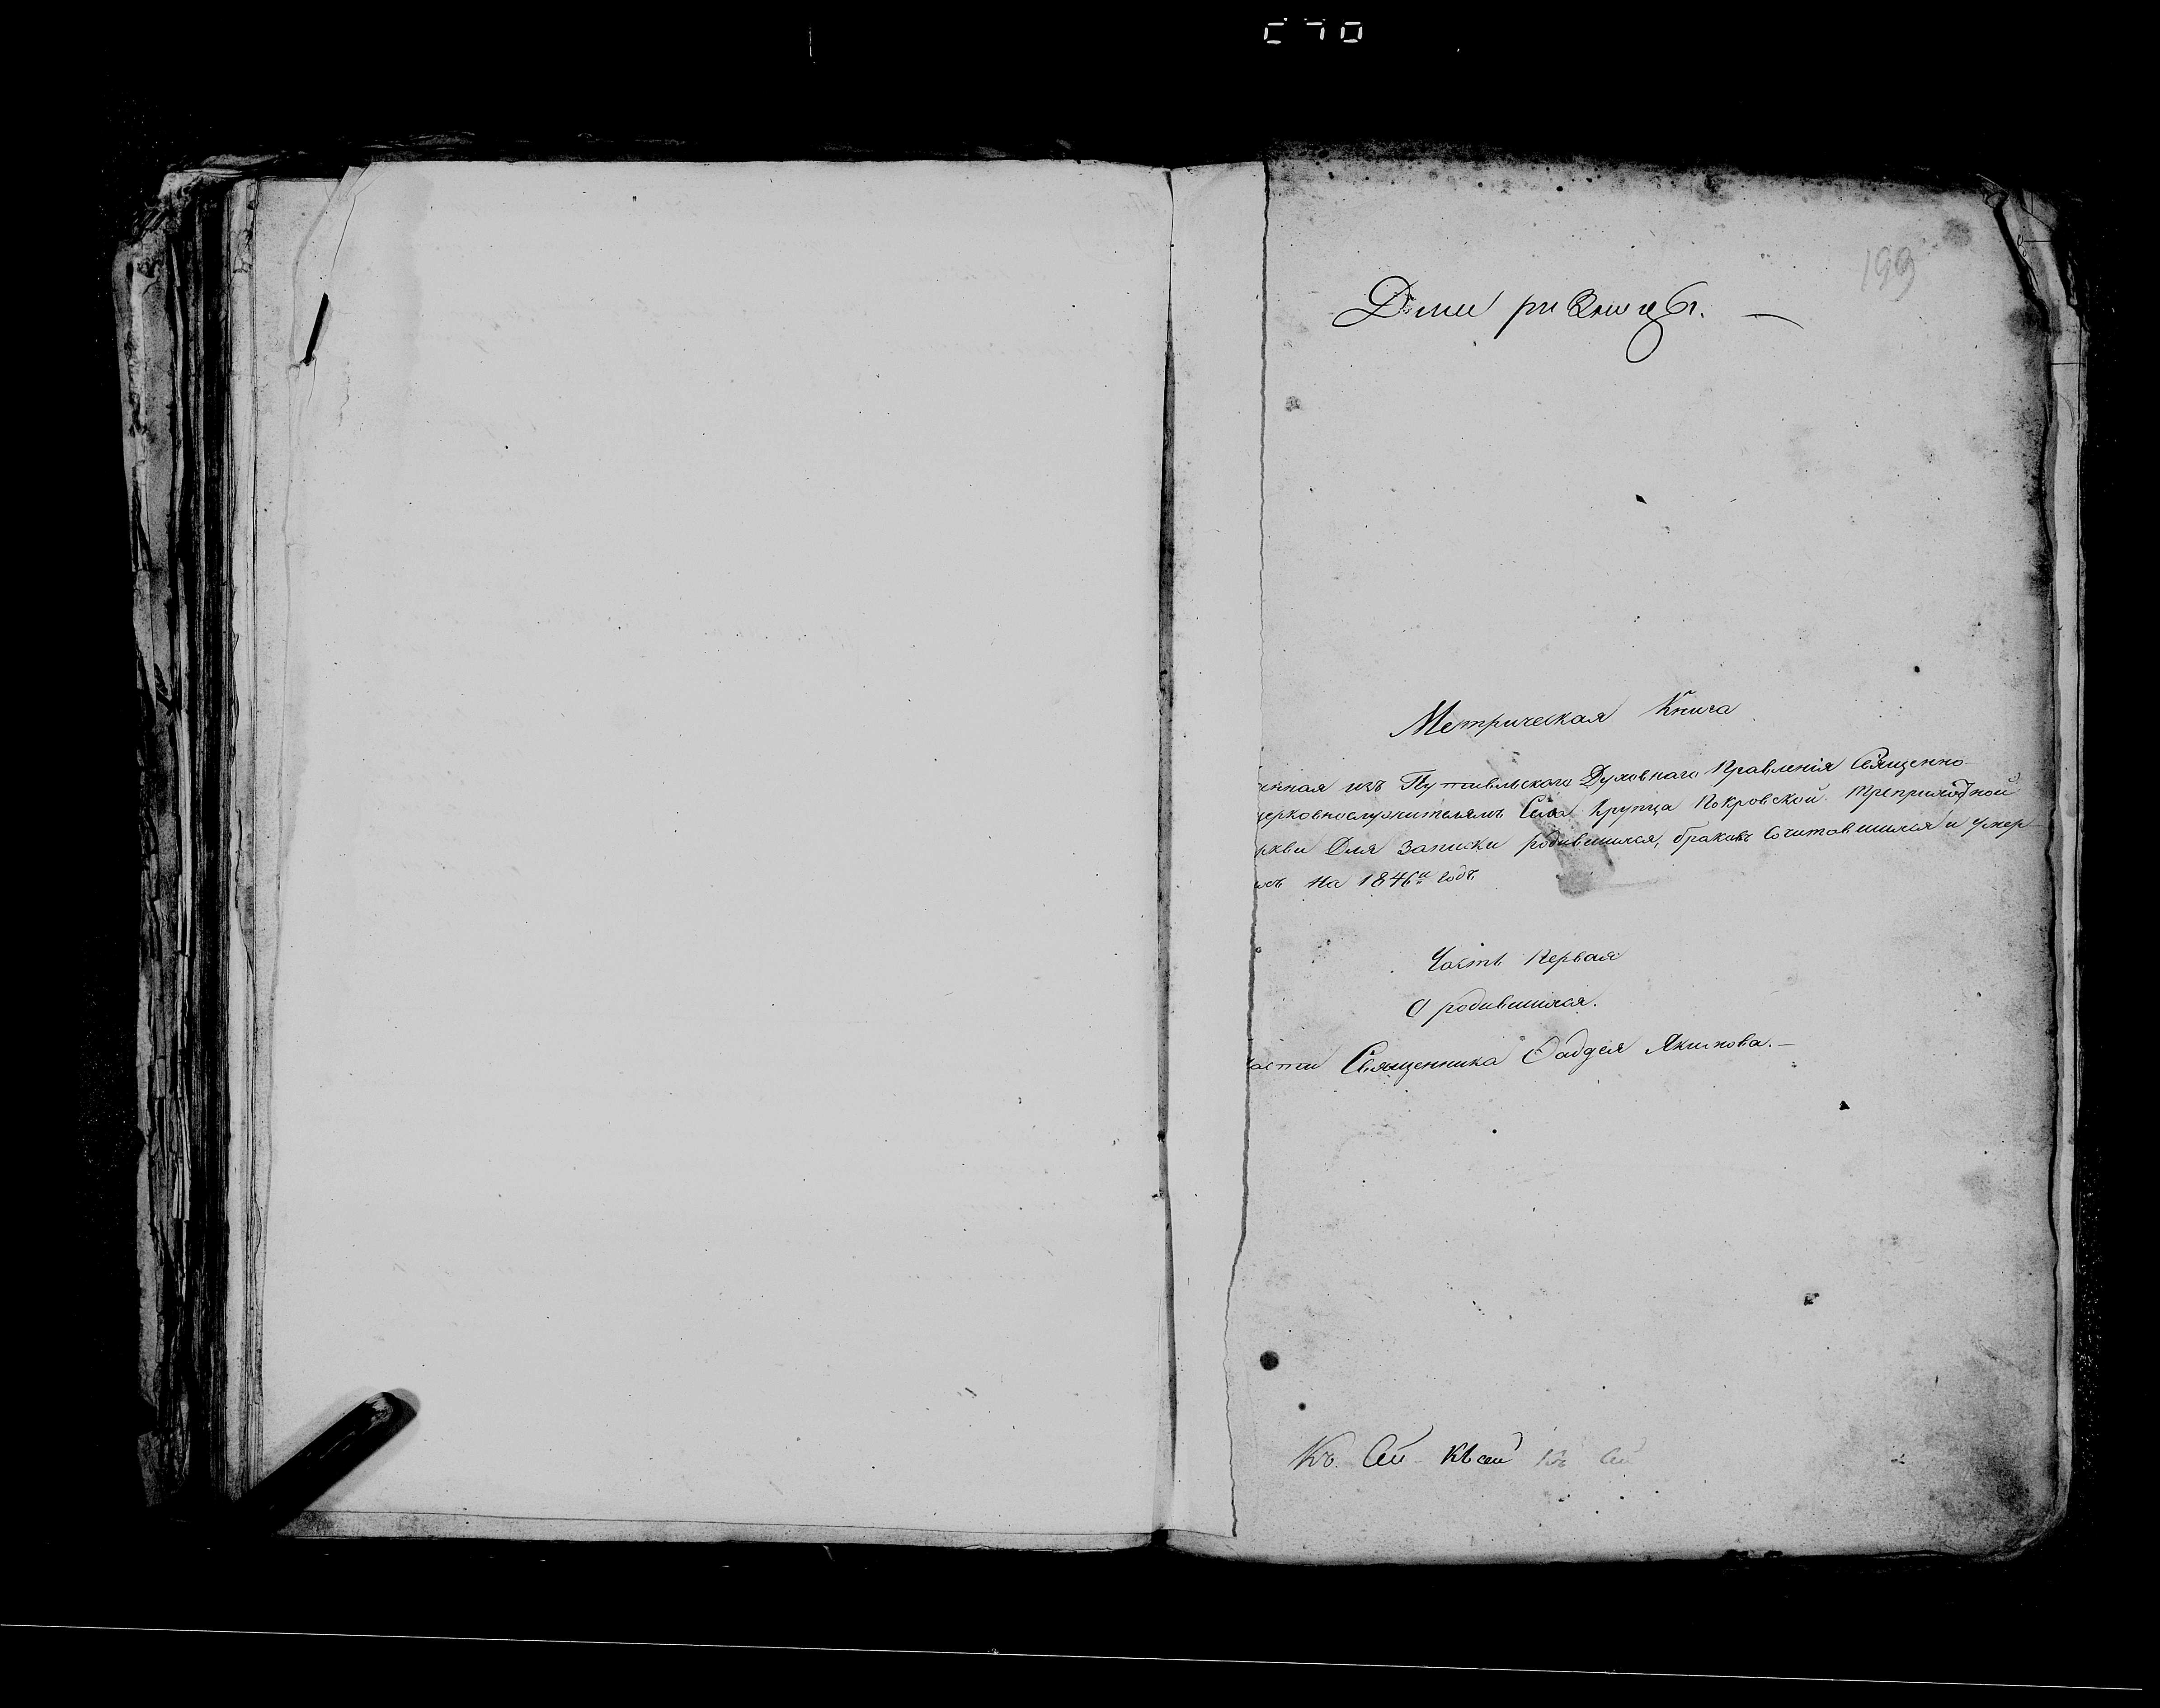 199
Метрическая Книга
нная изъ Путивльскаго Духовнаго Правленія Священно-
церковнослужителямъ Села Крупца Покровской Трепрестолной
ркви для записки родившихся, браковъ сочитавшихся и умер
ихъ на 1846й годъ
Часть Первая
О родившихся.
асти Священника Фаддея Якимова.—
Къ. Сей Къ сей Къ Сей